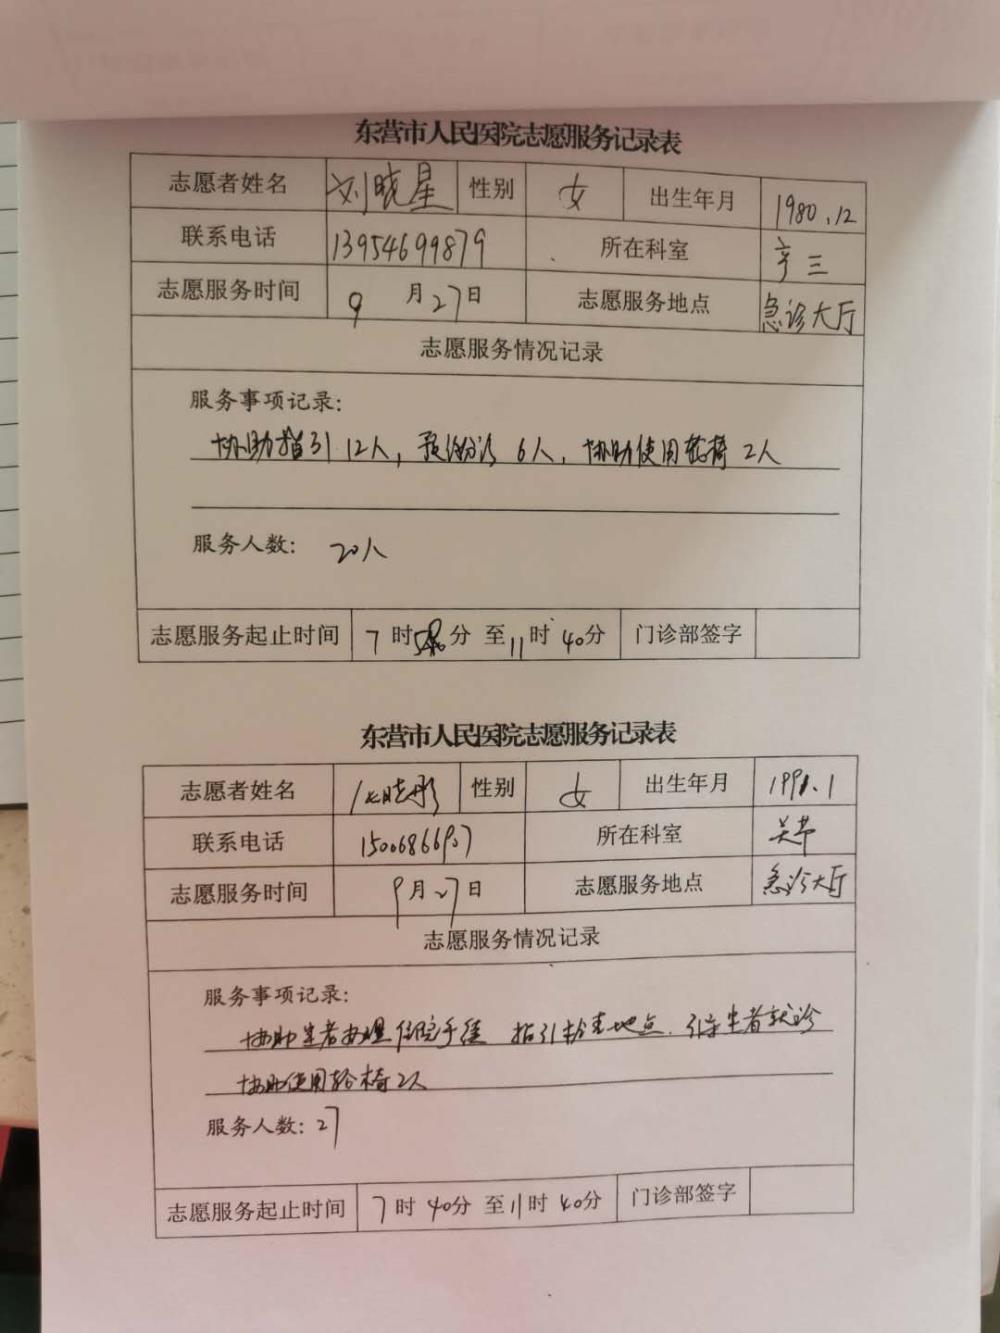 东营市人民医院志愿服务记录表
志愿者姓名 刘晓星 性别 女 出生年月 1980.12
联系电话 13954699879 所在科室 三
志愿服务时间 9月27日 志愿服务地点 急诊大厅
志愿服务情况记录
服务事项记录:
协助指引12人, 预检分诊6人, 协助使用轮椅2人
服务人数: 20人
志愿服务起止时间 7时 分 至11时40分 门诊部签字
东营市人民医院志愿服务记录表
志愿者姓名 晓彤 性别 女 出生年月 1991.1
联系电话 15006866907 所在科室 关节
志愿服务时间 9月27日 志愿服务地点 急诊大厅
志愿服务情况记录
服务事项记录:
协助患者办理住院手续 指引检查地点. 引导患者就诊
协助使用轮椅2人
服务人数: 27
志愿服务起止时间 7时40分 至11时40分 门诊部签字